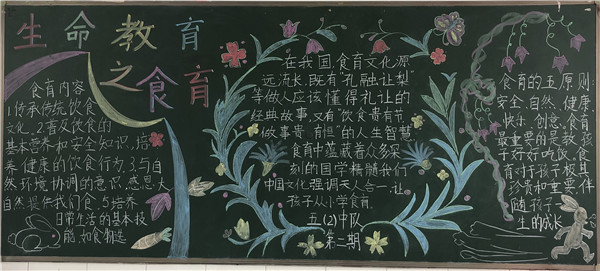 生命教育
之食育
食育内容
1.传承传统饮食
文化。2.普及饮食的
基本营养和安全知识,培
养健康的饮食行为。3.与自
然环境协调的意识,感恩大
自然提供我们食。5.培养
日常生活的基本技
能,如食物选
在我国食育文化源
远流长,既有"孔融让梨
等做人应该懂得礼让的
经典故事,又有"饮食贵有节
做事贵有恒"的人生智慧
食育中蕴藏着众多深
刻的国学精髓我们
中国文化强调天人合一,让
孩子从小学食育.
五(2)中队
第二期
食育的五原则:
安全、自然、健康、
快乐、创意。教育孩
最重要的是教食
子好好吃饭,其
育对于孩子极具
珍贵和重要
随孩子一
生的成长